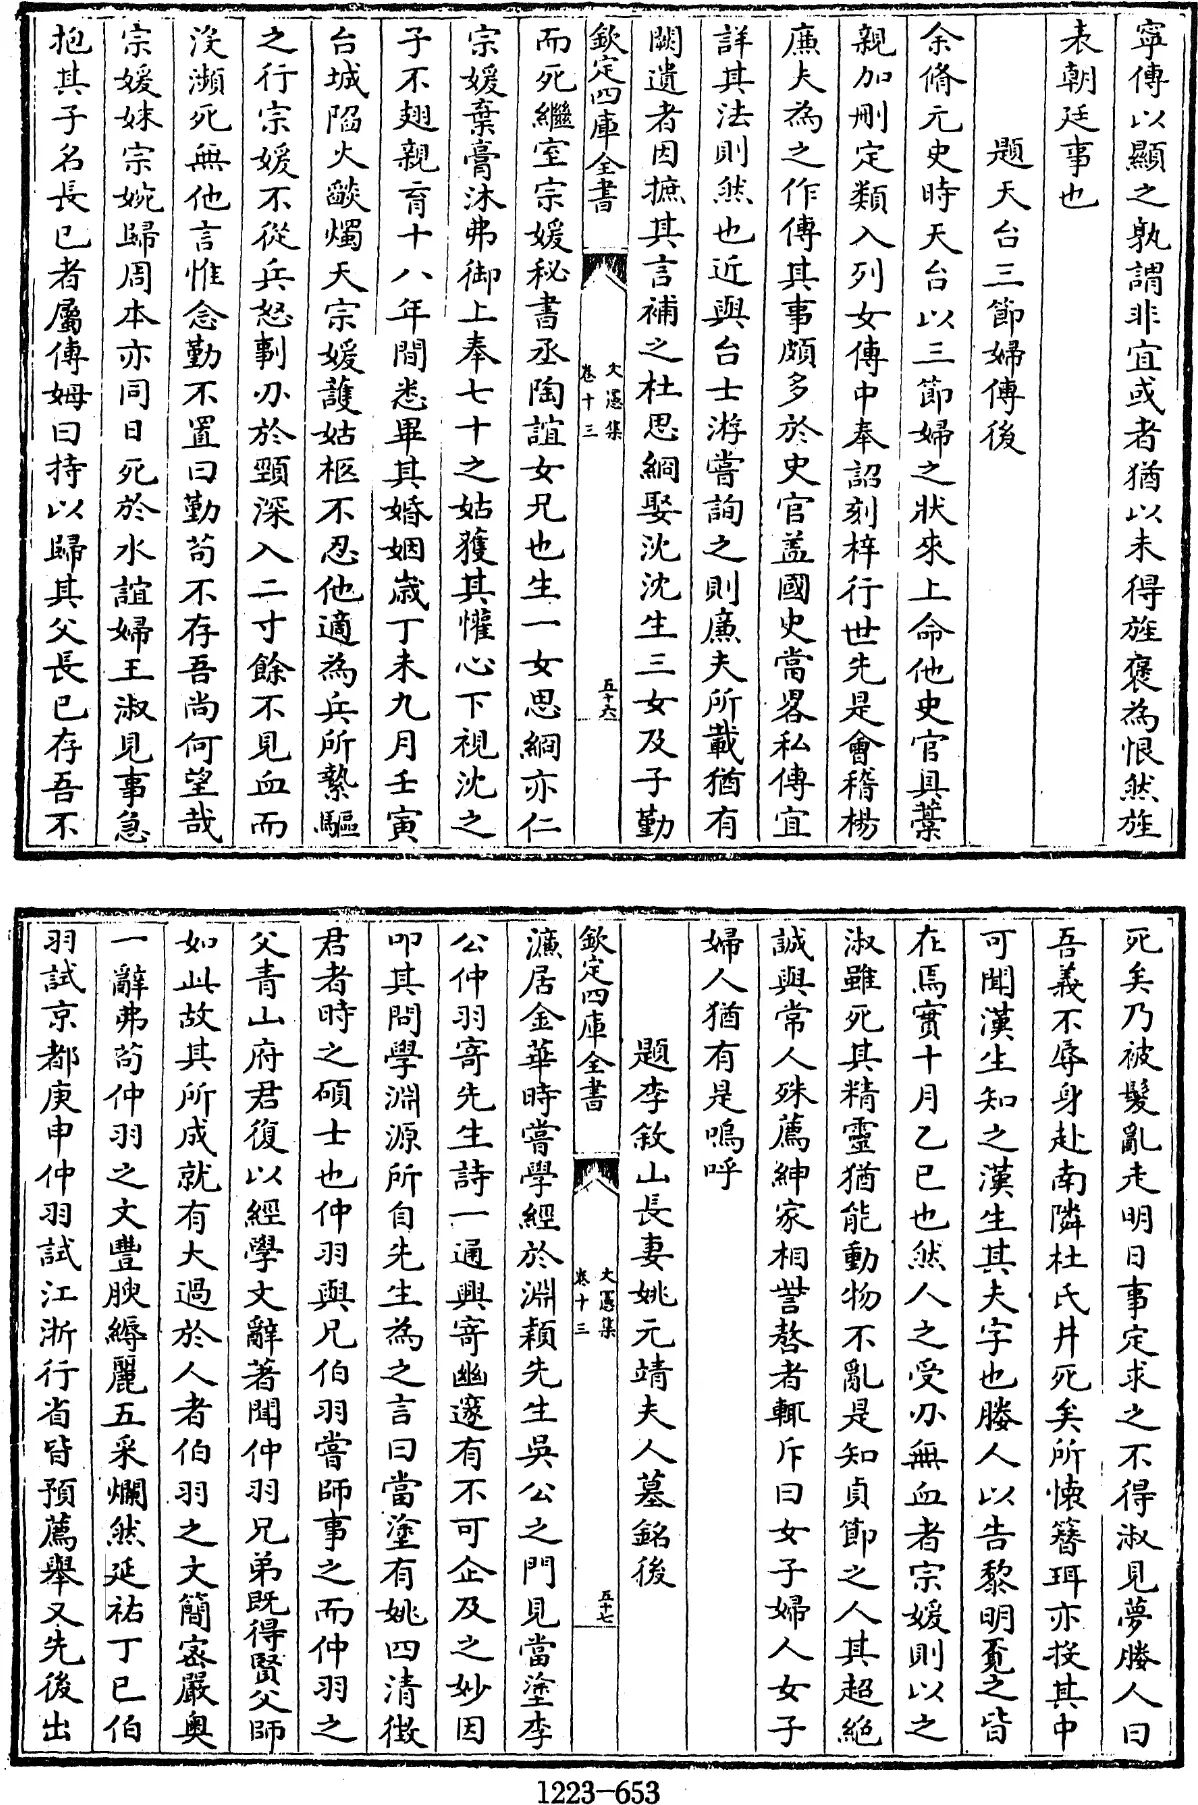 寧傳以顯之孰謂非宜或者猶以未得旌褒為恨然旌
表朝廷事也
題天台三節婦傳後
余脩元史時天台以三節婦之狀來上命他史官具藁
親加刪定類入列女傳中奉詔刻梓行世先是會稽楊
廉夫為之作傳其事頗多於史官盖國史當畧私傳宜
詳其法則然也近與台士游嘗詢之則廉夫所載猶有
闕遺者因摭其言補之杜思絅娶沈沈生三女及子勤
欽定四庫全書
文憲集
卷十三
五十六
而死繼室宗媛秘書丞陶誼女兄也生一女思絅亦仁
宗媛棄膏沐弗御上奉七十之姑獲其懽心下視沈之
子不翅親育十八年間悉畢其婚姻歲丁未九月壬寅
台城陷火燄燭天宗媛護姑柩不忍他適為兵所縶驅
之行宗媛不從兵怒剚刃於頸深入二寸餘不見血而
沒瀕死無他言惟念勤不置曰勤苟不存吾尚何望哉
宗媛妹宗婉歸周本亦同日死於水誼婦王淑見事急
抱其子名長已者屬傅姆曰持以歸其父長已存吾不
死矣乃被髮亂走明日事定求之不得淑見夢媵人曰
吾義不辱身赴南隣杜氏井死矣所懐簪珥亦投其中
可聞漢生知之漢生其夫字也媵人以告黎明覔之皆
在焉實十月乙巳也然人之受刃無血者宗媛則以之
淑雖死其精靈猶能動物不亂是知貞節之人其超絶
誠與常人殊薦紳家相訾謷者輒斥曰女子婦人女子
婦人猶有是嗚呼
題李敘山長妻姚元靖夫人墓銘後
濂居金華時嘗學經於淵穎先生吳公之門見當塗李
欽定四庫全書
文憲集
卷十三
五十七
公仲羽寄先生詩一通興寄幽邃有不可企及之妙因
叩其問學淵源所自先生為之言曰當塗有姚四清徴
君者時之碩士也仲羽與兄伯羽嘗師事之而仲羽之
父青山府君復以經學文辭著聞仲羽兄弟既得賢父師
如此故其所成就有大過於人者伯羽之文簡宻嚴奥
一辭弗苟仲羽之文豐腴縟麗五采爛然延祐丁巳伯
羽試京都庚申仲羽試江浙行省皆預薦舉又先後出
1223-653